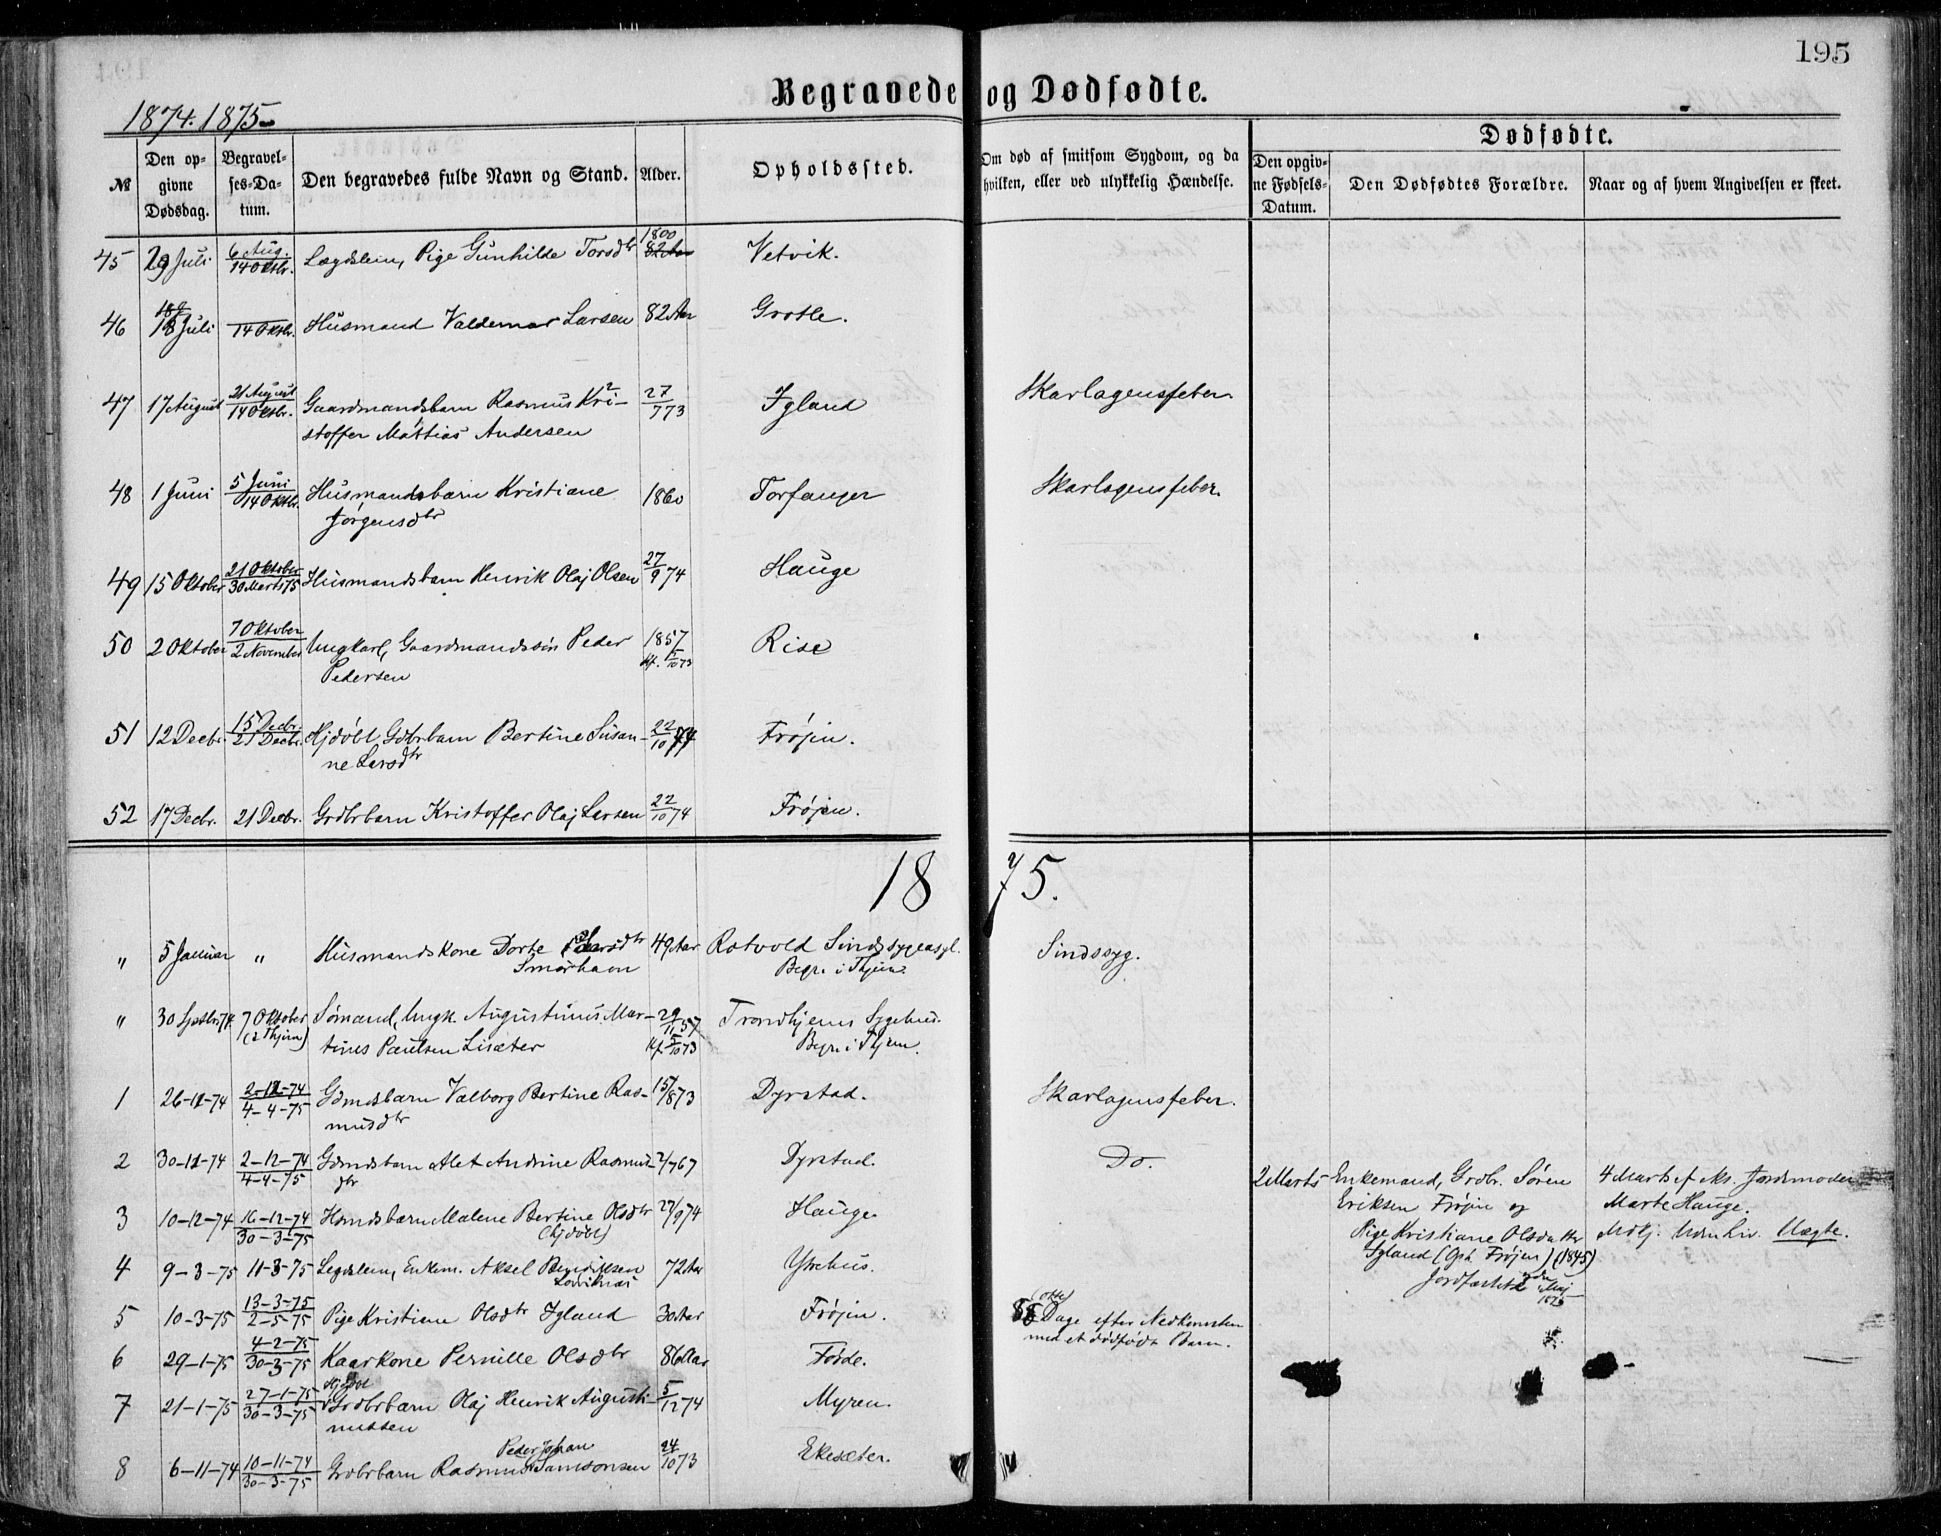 195
Begravede og Dødfødte.
1874. 1875
Dødfødte.
№ Den opgivne Dødsdag. Begravelses-Datum. Den begravedes fulde Navn og Stand. Alder. Opholdssted. Om død af smitsom Sygdom, og da hvilken, eller ved ulykkelig Hændelse. Den opgivne Fødsels-Datum. Den Dødfødtes Forældre. Naar og af hvem Angivelsen er skeet.
45 29 Juli 6 Aug. / 14 Oktbr. Lægdslem, Pige Gunhilde Torsdtr 1800 82 Aar Vetvik.
46 18 Juli 14 Oktbr. Husmand Valdemar Larsen 82 Aar Grotle.
47 17 August 21 August / 14 Oktbr. Gaardmandsbarn Rasmus Kri- 27/7 73 Igland Skarlagensfeber
stoffer Mattias Andersen
48 1 Juni 5 Juni / 14 Oktbr. Husmandsbarn Kristiane 1860 Torfanger Skarlagensfeber.
Jørgensdtr
49 15 Oktober 21 Oktober / 30 Marts 75 Husmandsbarn Henrik Olaj Olsen 27/9 74 Hauge
50 2 Oktober 7 Oktober / 2 November Ungkarl, Gaardmandssøn Peder 1857 Rise
Pedersen kf. 5/10 73
51 12 Decbr. 15 Decbr. / 21 Decbr. Hjdøbt Gdbrbarn Bertine Susan- 22/10 74 Frøjen.
ne Larsdtr
52 17 Decbr. 21 Decbr. Grdbrbarn Kristoffer Olaj Larsen 22/10 74 Frøjen.
1875.
" 5 Januar " Husmandskone Dorte Larsdtr 49 Aar Rotvold Sindssygeasyl. Sindssyg.
Smørhavn Begr. i Thjem.
" 30 Septbr. 74 7 Oktober Sømand, Ungk. Augustinus Mar- 29/11 57 Trondhjems Sygehus.
(i Thjem) tinus Paulsen Lisæter kf. 5/10 73 Begr. i Thjem.
1 26-11-74 2-12-74 / 4-4-75 Gdmdsbarn Valborg Bertine Ras- 15/8 73 Dyrstad. Skarlagensfeber.
musdtr
2 30-11-74 2-12-74 / 4-4-75 Gdmdsbarn Alet Andrine Rasmus- 2/7 67 Dyrstad. Do.
dtr
2 Marts Enkemand, Grdbr. Søren 4 Marts af Ex. Jordmoder
Eriksen Frøjen og Marte Hauge.
Pige Kristiane Olsdatter Mdkj. Udenliv. Uægte.
Igland (Oph. Frøjen) (1845)
Jordfæstet Maj
3 10-12-74 16-12-74 / 30-3-75 Hsmdsbarn Malene Bertine Olsdtr 27/9 74 Hauge.
(hjdøbt)
4 9-3-75 11-3-75 Legdslem, Enkem. Aksel Bendiksen 72 Aar Ytrehus.
5 10-3-75 13-3-75 / 2-5-75 Pige Kristiane Olsdtr Igland 30 Aar Frøjen. 8 (otte) Dage efter Nedkomsten
med et dødfødt Barn.
6 29-1-75 4-2-75 / 30-3-75 Kaarkone Pernille Olsdtr 86 Aar Førde.
7 21-1-75 27-1-75 / 30-3-75 Hjdøbt Grdbrbarn Olaj Henrik Augusti- 5/12 74 Myren.
nussen
8 6-11-74 10-11-74 / 30-3-75 Grdbrbarn Rasmus Peder Johan Samsonsen 24/10 73 Ekesæter.